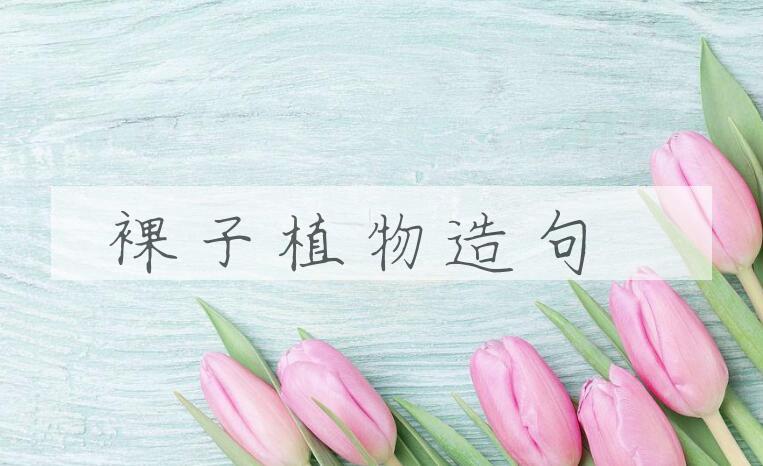 裸子植物造句